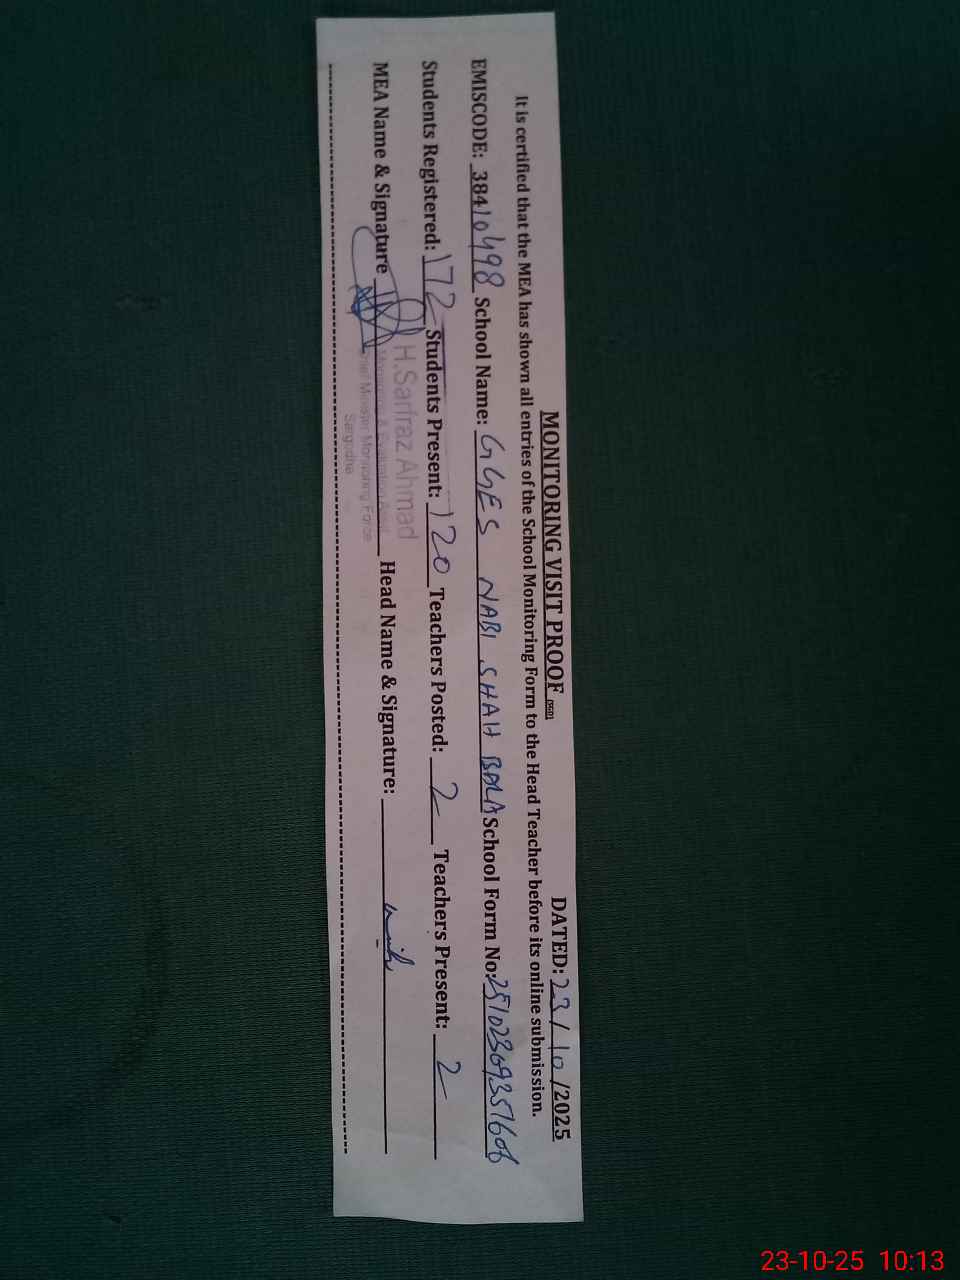 MONITORING VISIT PROOF (SGD) DATED: 23/10/2025
It is certified that the MEA has shown all entries of the School Monitoring Form to the Head Teacher before its online submission.
EMISCODE: 38410498 School Name: GGES NABI SHAH BALA School Form No: 25102309351606
Students Registered: 172 Students Present: 120 Teachers Posted: 2 Teachers Present: 2
MEA Name & Signature Head Name & Signature:
H.Sarfraz Ahmad
Monitoring & Evaluation Asstt
Chief Minister Monitoring Force
Sargodha
23-10-25 10:13